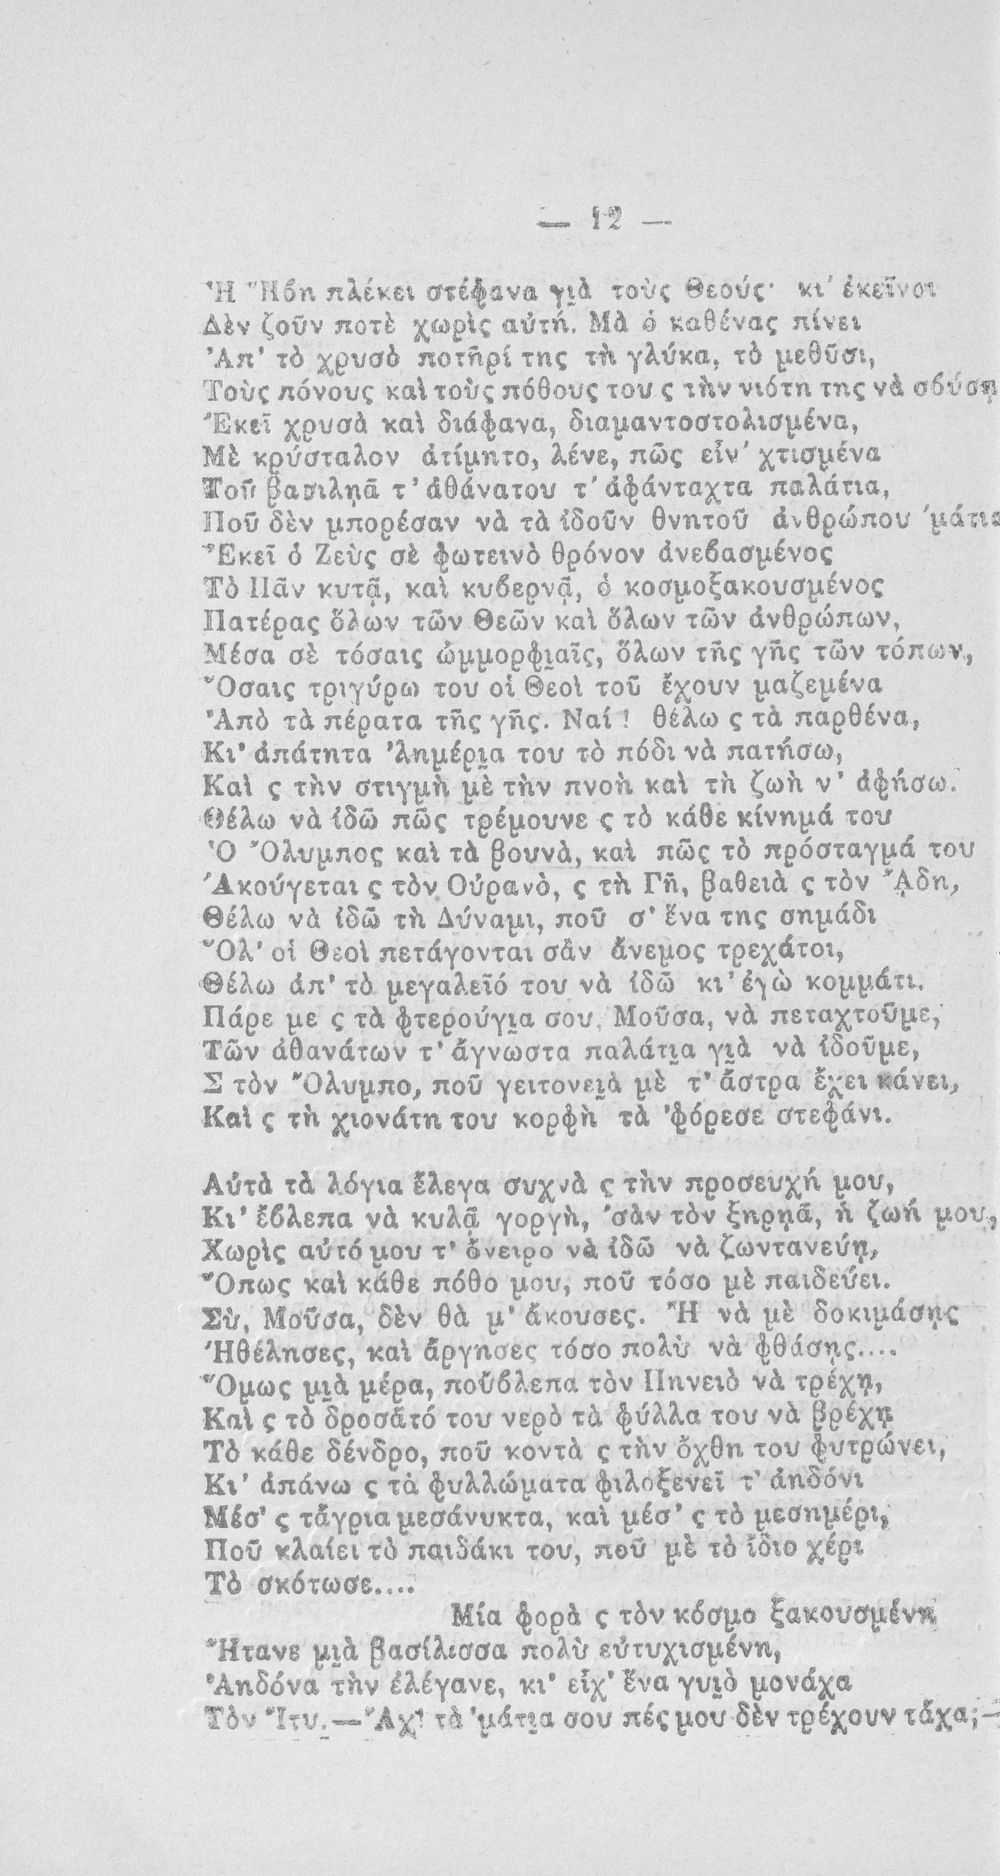 — 12 —
Ἡ Ἥβη πλέκει στέφανα γι̯ὰ τοὺς Θεούς· κι' ἐκεῖνοι
Δὲν ζοῦν ποτὲ χωρὶς αὐτή. Μὰ ὁ καθένας πίνει
Ἀπ' τὸ χρυσὸ ποτῆρί της τὴ γλύκα, τὸ μεθῦσι,
Τοὺς πόνους καὶ τοὺς πόθους του ς τὴν νιότη της νὰ σβύσῃ
Ἐκεῖ χρυσὰ καὶ διάφανα, διαμαντοστολισμένα,
Μὲ κρύσταλον ἀτίμητο, λένε, πῶς εἶν' χτισμένα
Τοῦ βασιληᾶ τ' ἀθάνατου τ' ἀφάνταχτα παλάτια,
Ποῦ δὲν μπορέσαν νὰ τὰ ἰδοῦν θνητοῦ ἀνθρώπου 'μάτια
Ἐκεῖ ὁ Ζεὺς σὲ φωτεινὸ θρόνον ἀνεβασμένος
Τὸ Πᾶν κυτᾷ, καὶ κυβερνᾷ, ὁ κοσμοξακουσμένος
Πατέρας ὅλων τῶν Θεῶν καὶ ὅλων τῶν ἀνθρώπων,
Μέσα σὲ τόσαις ὠμμορφι̯αῖς, ὅλων τῆς γῆς τῶν τόπων,
Ὅσαις τριγύρω του οἱ Θεοὶ τοῦ ἔχουν μαζεμένα
Ἀπὸ τὰ πέρατα τῆς γῆς. Ναί! θέλω ς τὰ παρθένα,
Κι' ἀπάτητα 'λημέρι̯α του τὸ πόδι νὰ πατήσω,
Καὶ ς τὴν στιγμὴ μὲ τὴν πνοὴ καὶ τὴ ζωὴ ν' ἀφήσω.
Θέλω νὰ ἰδῶ πῶς τρέμουνε ς τὸ κάθε κίνημά του
Ὁ Ὄλυμπος καὶ τὰ βουνὰ, καὶ πῶς τὸ πρόσταγμά του
Ἀκούγεται ς τὸν Οὐρανὸ, ς τὴ Γῆ, βαθειὰ ς τὸν ᾍδη,
Θέλω νὰ ἰδῶ τὴ Δύναμι, ποῦ σ' ἕνα της σημάδι
Ὅλ' οἱ Θεοὶ πετάγονται σὰν ἄνεμος τρεχάτοι,
Θέλω ἀπ' τὸ μεγαλεῖό του νὰ ἰδῶ κι' ἐγὼ κομμάτι.
Πάρε με ς τὰ φτερούγι̯α σου, Μοῦσα, νὰ πεταχτοῦμε,
Τῶν ἀθανάτων τ' ἄγνωστα παλάτι̯α γι̯ὰ νὰ ἰδοῦμε,
Σ τὸν Ὄλυμπο, ποῦ γειτονει̯ὰ μὲ τ' ἄστρα ἔχει κάνει,
Καὶ ς τὴ χιονάτη του κορφὴ τὰ 'φόρεσε στεφάνι.
Αὐτὰ τὰ λόγια ἔλεγα συχνὰ ς τὴν προσευχή μου,
Κι' ἔβλεπα νὰ κυλᾷ γοργὴ, 'σὰν τὸν ξηρηᾶ, ἡ ζωή μου,
Χωρὶς αὐτό μου τ' ὄνειρο νὰ ἰδῶ νὰ ζωντανεύῃ,
Ὅπως καὶ κάθε πόθο μου, ποῦ τόσο μὲ παιδεύει.
Σὺ, Μοῦσα, δὲν θὰ μ' ἄκουσες. Ἢ νὰ μὲ δοκιμάσῃς
Ἠθέλησες, καὶ ἄργησες τόσο πολὺ νὰ φθάσῃς....
Ὅμως μι̯ὰ μέρα, ποὔβλεπα τὸν Πηνειὸ νὰ τρέχῃ,
Καὶ ς τὸ δροσᾶτό του νερὸ τὰ φύλλα του νὰ βρέχῃ
Τὸ κάθε δένδρο, ποῦ κοντὰ ς τὴν ὄχθη του φυτρώνει,
Κι' ἀπάνω ς τὰ φυλλώματα φιλοξενεῖ τ' ἀηδόνι
Μέσ' ς τἄγρια μεσάνυκτα, καὶ μέσ' ς τὸ μεσημέρι,
Ποῦ κλαίει τὸ παιδάκι του, ποῦ μὲ τὸ ἴδιο χέρι
Τὸ σκότωσε....
Μία φορὰ ς τὸν κόσμο ξακουσμένη
Ἤτανε μι̯ὰ βασίλισσα πολὺ εὐτυχισμένη,
Ἀηδόνα τὴν ἐλέγανε, κι' εἶχ' ἕνα γυι̯ὸ μονάχα
Τὸν Ἴτυ.—Ἂχ! τὰ 'μάτι̯α σου πές μου δὲν τρέχουν τἄχα;—